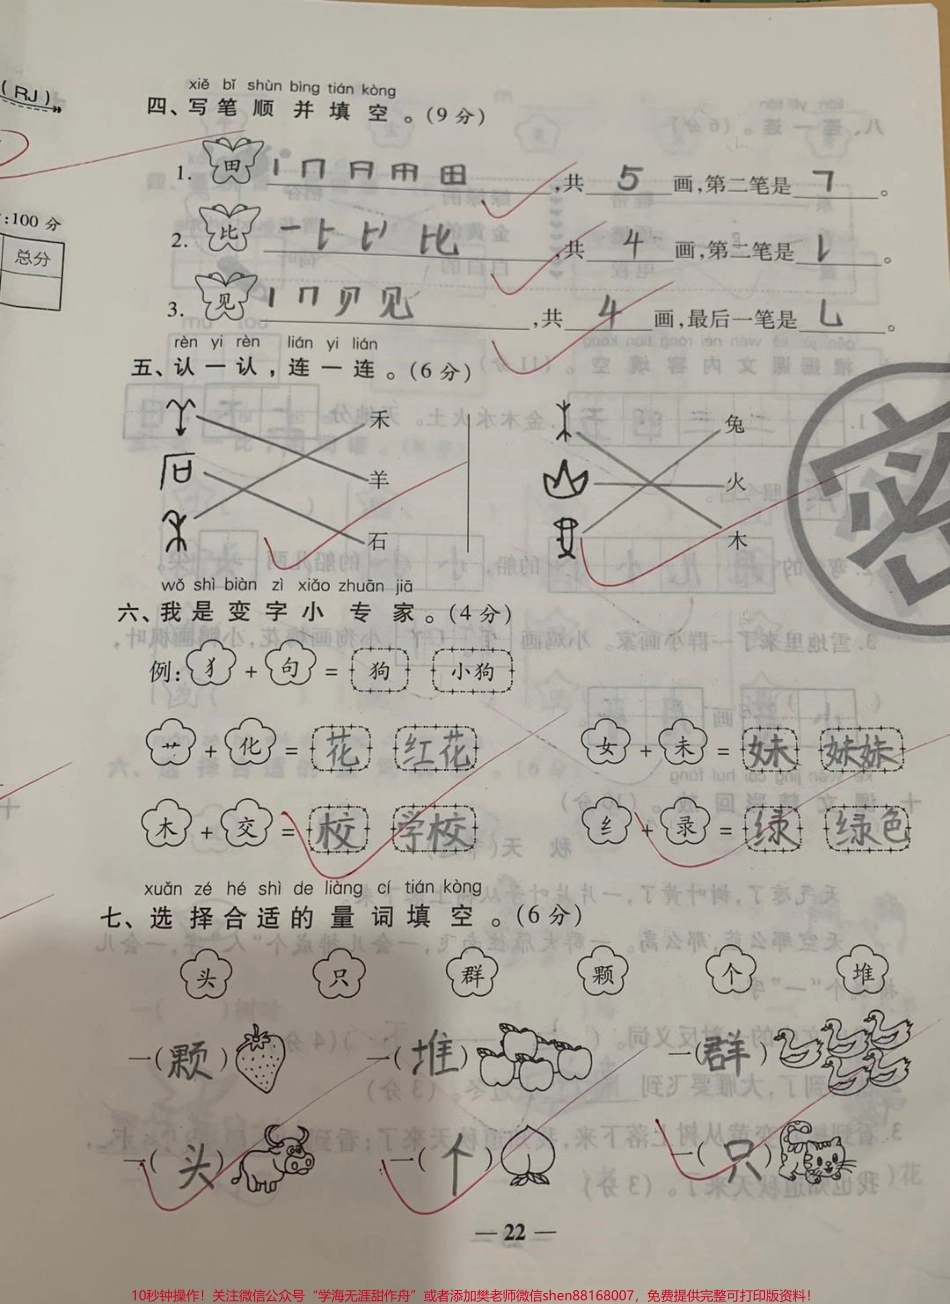 (RJ)
:100 分
总分
xiě bǐ shùn bìng tián kòng
四、写笔顺并填空。(9 分)
1. 田 丨 冂 日 用 田 ,共 5 画,第二笔是 ㇕ 。
2. 比 一 比 ,共 4 画,第二笔是 。
3. 见 丨 冂 贝 见 ,共 4 画,最后一笔是 乚 。
rèn yi rèn lián yi lián
五、认一认,连一连。(6 分)
禾 兔
羊 火
石 木
密
wǒ shì biàn zì xiǎo zhuān jiā
六、我是变字小专家。(4 分)
例:犭 + 句 = 狗 小狗
艹 + 化 = 花 红花 女 + 未 = 妹 妹妹
木 + 交 = 校 学校 纟 + 录 = 绿 绿色
xuǎn zé hé shì de liàng cí tián kòng
七、选择合适的量词填空。(6 分)
头 只 群 颗 个 堆
一( 颗 ) 一( 堆 ) 一( 群 )
一( 头 ) 一( 个 ) 一( 只 )
— 22 —
10秒钟操作！关注微信公众号“学海无涯甜作舟”或者添加樊老师微信shen88168007，免费提供完整可打印版资料！